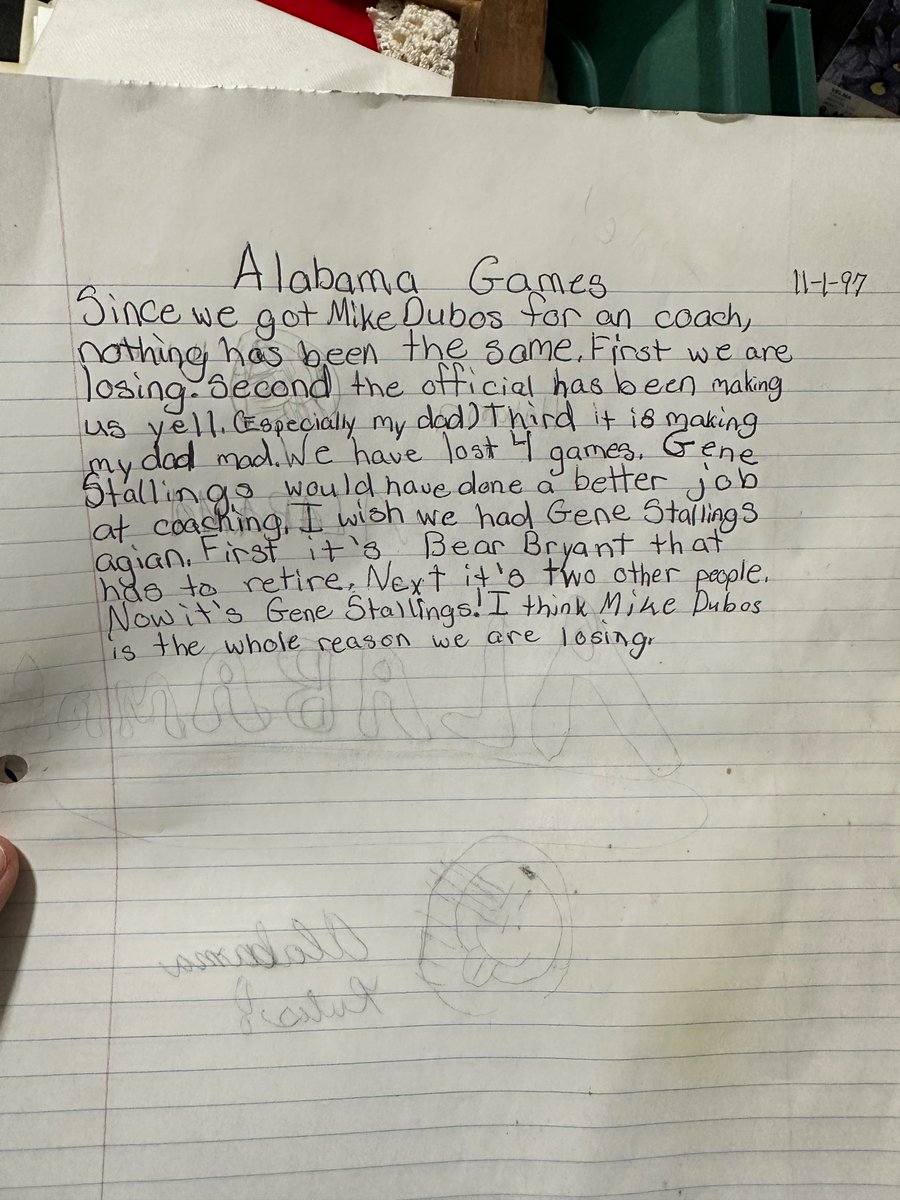 VELMA
Alabama Games 11-1-97
Since we got Mike Dubos for an coach,
nothing has been the same. First we are
losing. Second the official has been making
us yell. (Especially my dad) Third it is making
my dad mad. We have lost 4 games. Gene
Stallings would have done a better job
at coaching. I wish we had Gene Stallings
agian. First it's Bear Bryant that
has to retire. Next it's two other people.
Now it's Gene Stallings! I think Mike Dubos
is the whole reason we are losing.
ALABAMA
Alabama
Rules!